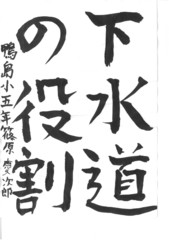 下水道
の役割
鴨島小五年篠原慶次郎